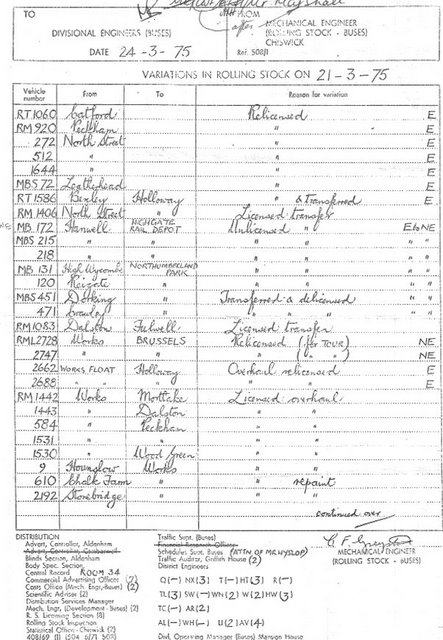 TO
FROM
after
DIVISIONAL ENGINEERS (BUSES)
MECHANICAL ENGINEER
(ROLLING STOCK - BUSES)
CHISWICK
DATE 24-3-75
Ref. 508/1
VARIATIONS IN ROLLING STOCK ON 21-3-75
Vehicle number From To Reason for variation
RT 1060 Catford Relicensed E
RM 920 Peckham " E
272 North Street " E
512 " " E
1644 " " E
MBS 72 Leatherhead " E
RT 1586 Bexley Holloway " & Transferred E
RM 1406 North Street " Licensed transfer
MB 172 Hanwell HIGHGATE RAIL DEPOT Unlicensed " E to NE
MBS 215 " " " " " "
218 " " " " " "
MB 131 High Wycombe NORTHUMBERLAND PARK " " " "
120 Reigate " " " " "
MBS 451 Dorking " Transferred & delicensed " "
471 Crawley " " " " "
RM 1083 Dalston Fulwell Licensed transfer
RML 2728 Works BRUSSELS Relicensed (for TOUR) NE
2747 " " " ( " " ) NE
2662 WORKS FLOAT Holloway Overhaul relicensed E
2688 " " " " E
RM 1442 Works Mortlake Licensed overhaul
1443 " Dalston " "
584 " Peckham " "
1531 " " " "
1530 " Wood Green " "
9 Hounslow Works " "
610 Chalk Farm " " repaint
2192 Stonebridge " " "
continued over
MECHANICAL ENGINEER
(ROLLING STOCK - BUSES)
DISTRIBUTION
Advert. Controller, Aldenham
Blinds Section, Aldenham
Body Spec. Section
Central Record ROOM 34
Commercial Advertising Officer (2)
Costs Office (Mech. Engr. Buses) (2)
Scientific Adviser (2)
Distribution Services Manager
Mech. Engr. (Development - Buses) (2)
R. S. Licensing Section (8)
Rolling Stock Inspection
Statistical Office - Chiswick (2)
Traffic Supt. (Buses)
Financial Research Officer
Schedules Supt. Buses
Traffic Auditor, Griffith House (2)
District Engineers
Q(-) NX(3) T(-) HT(3) R(-)
TL(3) SW(-) WN(2) W(2) HW(3)
TC(-) AR(2)
AL(-) WH(-) U(2) AV(4)
Divl. Operating Manager (Buses) Mansion House